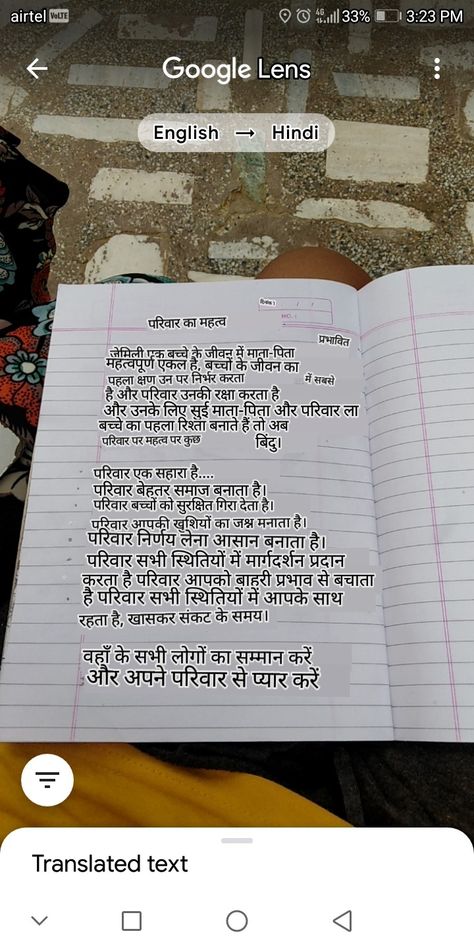 airtel VoLTE 4G 33% 3:23 PM
Google Lens
English → Hindi
दिनांक)
/ /
NO. :
परिवार का महत्व
प्रभावित
जेमिली एक बच्चे के जीवन में माता-पिता
महत्वपूर्ण एकल है, बच्चों के जीवन का
पहला क्षण उन पर निर्भर करता में सबसे
है और परिवार उनकी रक्षा करता है
और उनके लिए सुई माता-पिता और परिवार ला
बच्चे का पहला रिश्ता बनाते हैं तो अब
परिवार पर महत्व पर कुछ बिंदु।
परिवार एक सहारा है....
परिवार बेहतर समाज बनाता है।
परिवार बच्चों को सुरक्षित गिरा देता है।
परिवार आपकी खुशियों का जश्न मनाता है।
परिवार निर्णय लेना आसान बनाता है।
परिवार सभी स्थितियों में मार्गदर्शन प्रदान
करता है परिवार आपको बाहरी प्रभाव से बचाता
है परिवार सभी स्थितियों में आपके साथ
रहता है, खासकर संकट के समय।
वहाँ के सभी लोगों का सम्मान करें
और अपने परिवार से प्यार करें
Translated text